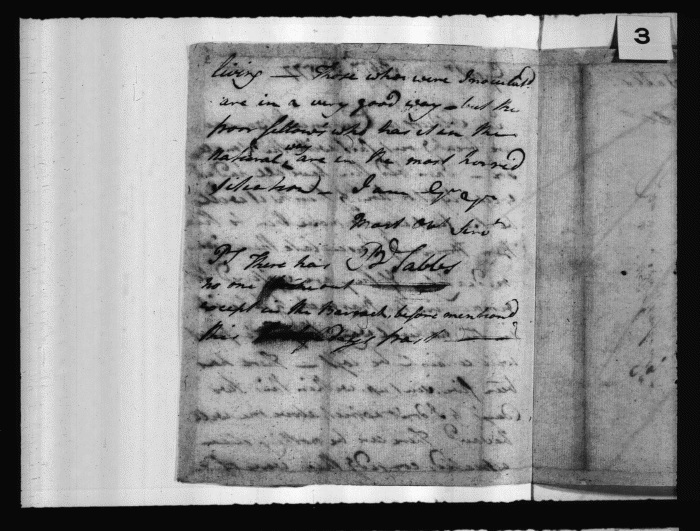 3
living — Those who were Inoculatd
are in a very good way — but the
poor fellows who has it in the
natural way are in the most horrid
situation — I am Yr
Most Obt Servt
Bd Gibbs
Ps There has
no one
except in the Barrack before mentiond
this Days past —